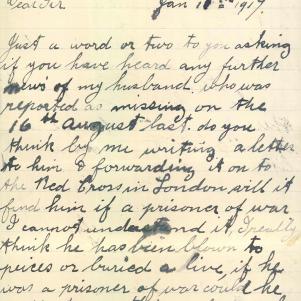 Dear Sir Jan 10th 1917.
Just a word or two to you asking
if you have heard any further
news of my husband. who was
reported as missing on the
16th august last. do you
think by me writing a letter
to him & forwarding it on to
the Red Cross in London will it
find him if a prisoner of war
I cannot understand it, I really
think he has been blown to
peices or buried a live, if he
was a prisoner of war could he